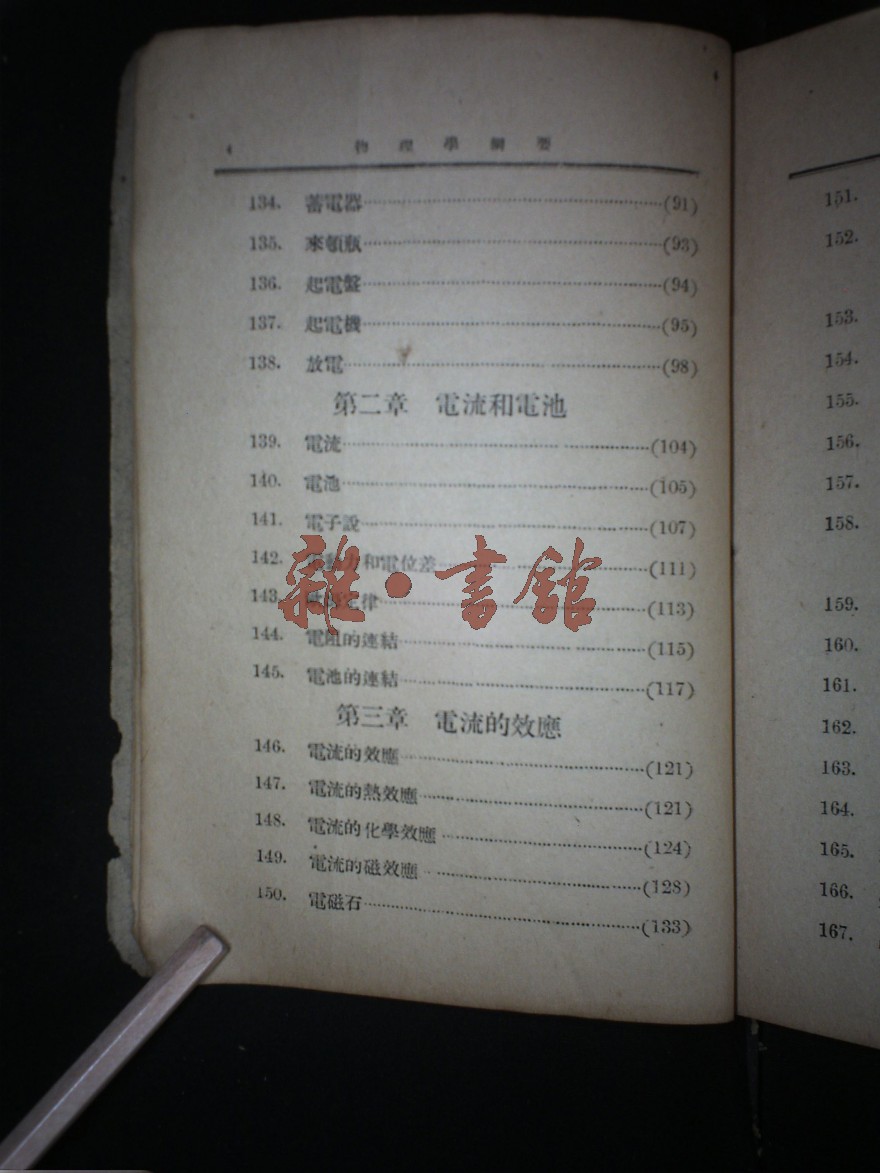 4 物理學綱要
134. 蓄電器(91)
135. 來頓瓶(93)
136. 起電盤(94)
137. 起電機(95)
138. 放電(98)
第二章 電流和電池
139. 電流(104)
140. 電池(105)
141. 電子說(107)
142. 力和電位差(111)
143. 定律(113)
144. 電阻的連結(115)
145. 電池的連結(117)
第三章 電流的效應
146. 電流的效應(121)
147. 電流的熱效應(121)
148. 電流的化學效應(124)
149. 電流的磁效應(128)
150. 電磁石(133)
雜·書館
151.
152.
153.
154.
155.
156.
157.
158.
159.
160.
161.
162.
163.
164.
165.
166.
167.